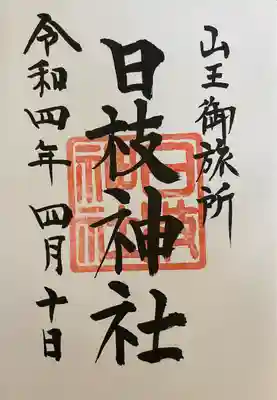 山王御旅所
日枝神社
令和四年 四月 十日